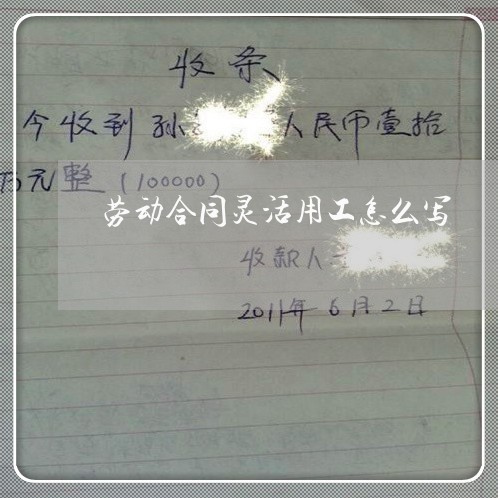 收条
今收到孙 人民币壹拾
万元整(100000)
劳动合同灵活用工怎么写
收款人
2011年6月2日